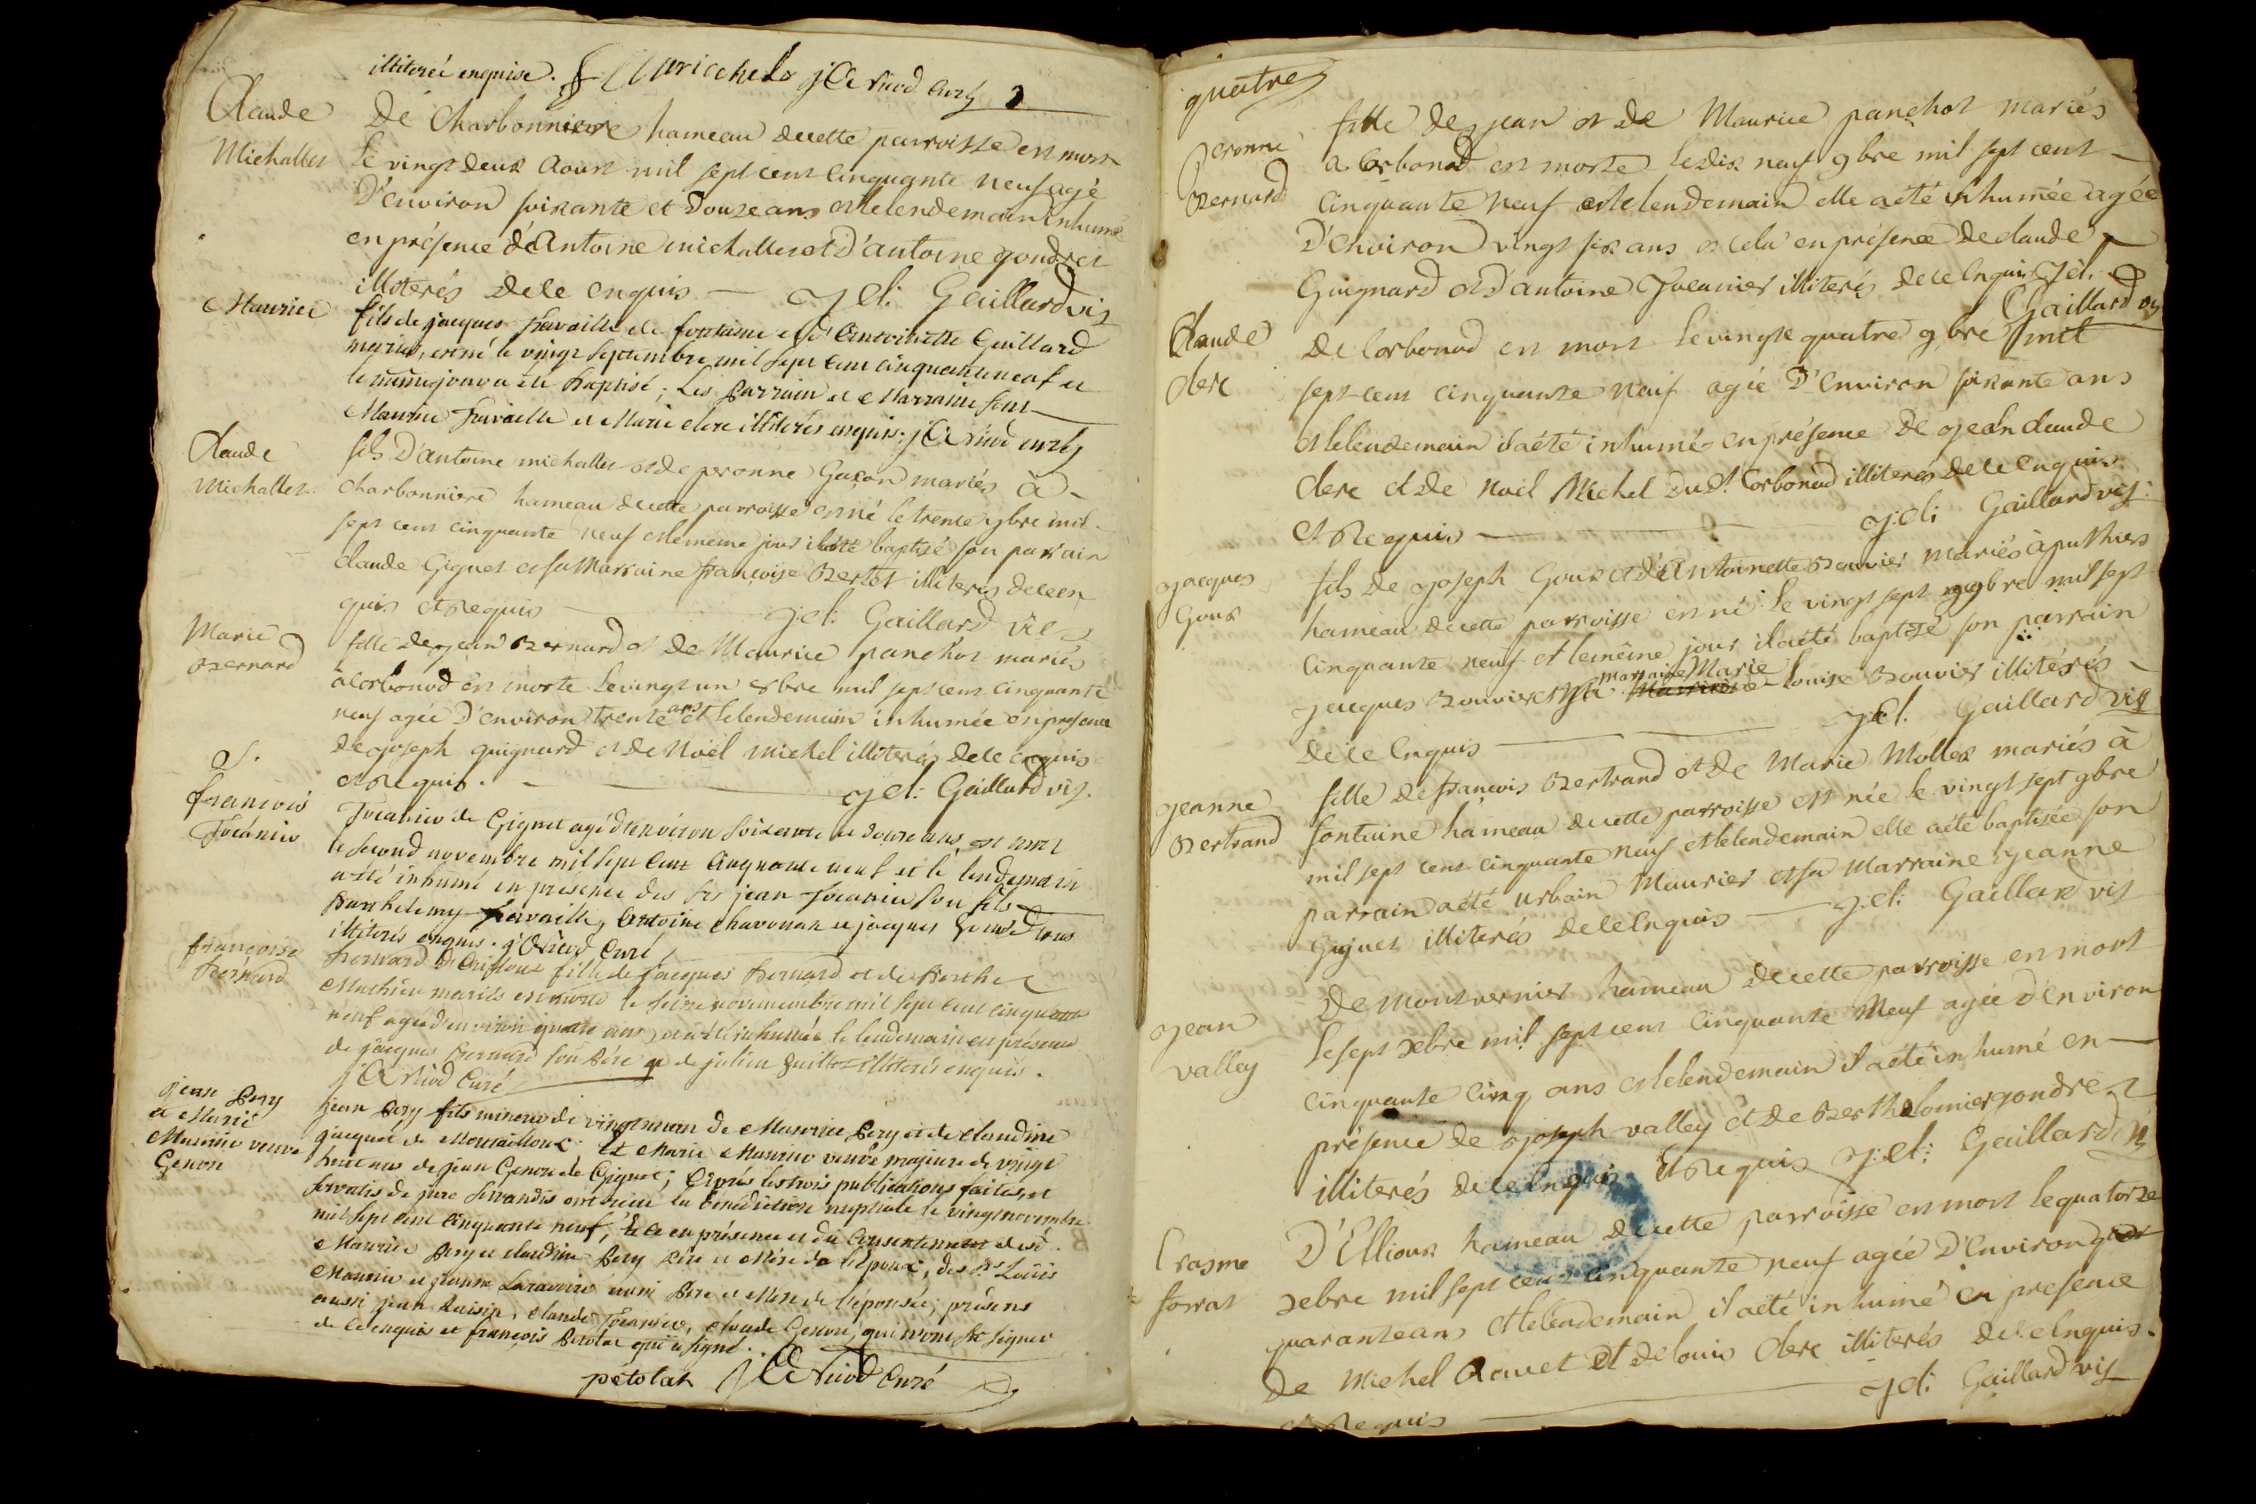 illiterés enquise.
Claude Michallet
De Charbonniere hameau de cette parroisse est mort
le vingt deux Aoust mil sept cent cinquante neuf agé
D'environ soixante et douze ans et le lendemain inhumé
en présence d'Antoine michallet et d'antoine gondret
illiterés de ce enquis — Gaillard vic
Maurice
fils de jacques travaille de fontaine et d'Antoinette Gaillard
mariés, est né le vingt septembre mil sept cent cinquante neuf et
le même jour a été baptisé; Les Parrain et Marraine sont
Maurice Travaille et Marie clerc illiterés enquis. curé
Claude Michallet
fils D'antoine michallet et de peronne Gaçon mariés à
charbonniere hameau de cette parroisse est né le trente 7bre mil
sept cent cinquante neuf et le meme jour il a été baptisé son parrain
claude Giguet et sa Marraine françoise Bertet illiterés de ce en
quis et Requis — Gaillard vic
Marie Bernard
fille de jean Bernard et de Maurice panchot mariés
à Corbonod est morte le vingt un 8bre mil sept cent cinquante
neuf agée D'environ trente ans et le lendemain inhumée en presence
de joseph guignard et de Noël michel illiterés de ce enquis
et Requis. — Gaillard vic.
S. françois
de Gignet agé d'environ soixante et douze ans, est mort
le second novembre mil sept cent cinquante neuf et le lendemain
a été inhumé en presence des srs jean son fils
Barthelemy travaille, Antoine et jacques tous
illiterés enquis. Curé
françoise Bernard
Bernard fille de jacques Bernard et de Berthe
Mathieu mariés est morte le seize novembre mil sept cent cinquante
neuf agée d'environ quatre ans, a été inhumée le lendemain en présence
de jacques Bernard son Père et de julien illiterés enquis.
Curé
jean Pery et Marie Maurier veuve Genon
jean Pery fils mineur de vingt un an de Maurice Pery et de claudine
jacquet de Et Marie Maurier veuve majeure de vingt
huit ans de jean Genon de Gignet; Après les trois publications faites et
servatis de jure servandis ont reçu la bénédiction nuptiale le vingt novembre
mil sept cent cinquante neuf, et ce en présence et du Consentement desd.
Maurice Pery et claudine Pery Père et Mère de l'époux, des srs Louis
Maurier et jeanne aussi Père et Mère de l'épousée; présens
aussi jean claude claude Genon, qui n'ont sçu signer
de ce enquis et françois Petolat qui a signé.
petolat Curé
quatre
peronne Bernard
fille de jean et de Maurice panchot mariés
a Corbonod est morte le dix neuf 9bre mil sept cent
Cinquante neuf et le lendemain elle a été inhumée agée
D'environ vingt six ans et cela en présence de claude
Guignard et d'antoine illiterés de ce Enquis
Gaillard vic
Claude clerc
De Corbonod est mort le vingt quatre 9bre mil
sept cent cinquante neuf agée D'environ soixante ans
et le lendemain il a été inhumé en présence de jean claude
clerc et de Noël Michel dud. Corbonod illiterés de ce enquis
et Requis — Gaillard vic.
jacques Goux
fils de joseph Goux et d'Antoinette Bouvier mariés à puthier
hameau de cette parroisse est né le vingt sept 9bre mil sept
cinquante neuf et le même jour il a été baptisé son parrain
jacques Bouvier et sa marraine Marie Louise Bouvier illitérés
de ce Enquis — Gaillard vic
jeanne Bertrand
fille de françois Bertrand et de Marie Mollex mariés à
fontaine hameau de cette parroisse est née le vingt sept 9bre
mil sept cent cinquante neuf et le lendemain elle a été baptisée son
parrain a été urbain Maurier et sa Marraine jeanne
Giguet illiterés de ce Enquis — Gaillard vic
jean valley
De montvernier hameau de cette parroisse est mort
le sept xbre mil sept cent cinquante Neuf agée d'environ
cinquante cinq ans et le lendemain il a été inhumé en
présence de joseph valley et de Berthelomier gondret
illiterés de ce Enquis Et Requis Gaillard vi
Erasme forrat
D'Ellioux hameau de cette parroisse est mort le quatorze
xbre mil sept cent cinquante neuf agée D'environ
quarante ans et le lendemain il a été inhumé en presence
De Michel Ravet Et de louis clerc illiterés de ce Enquis.
et Requis — Gaillard vic